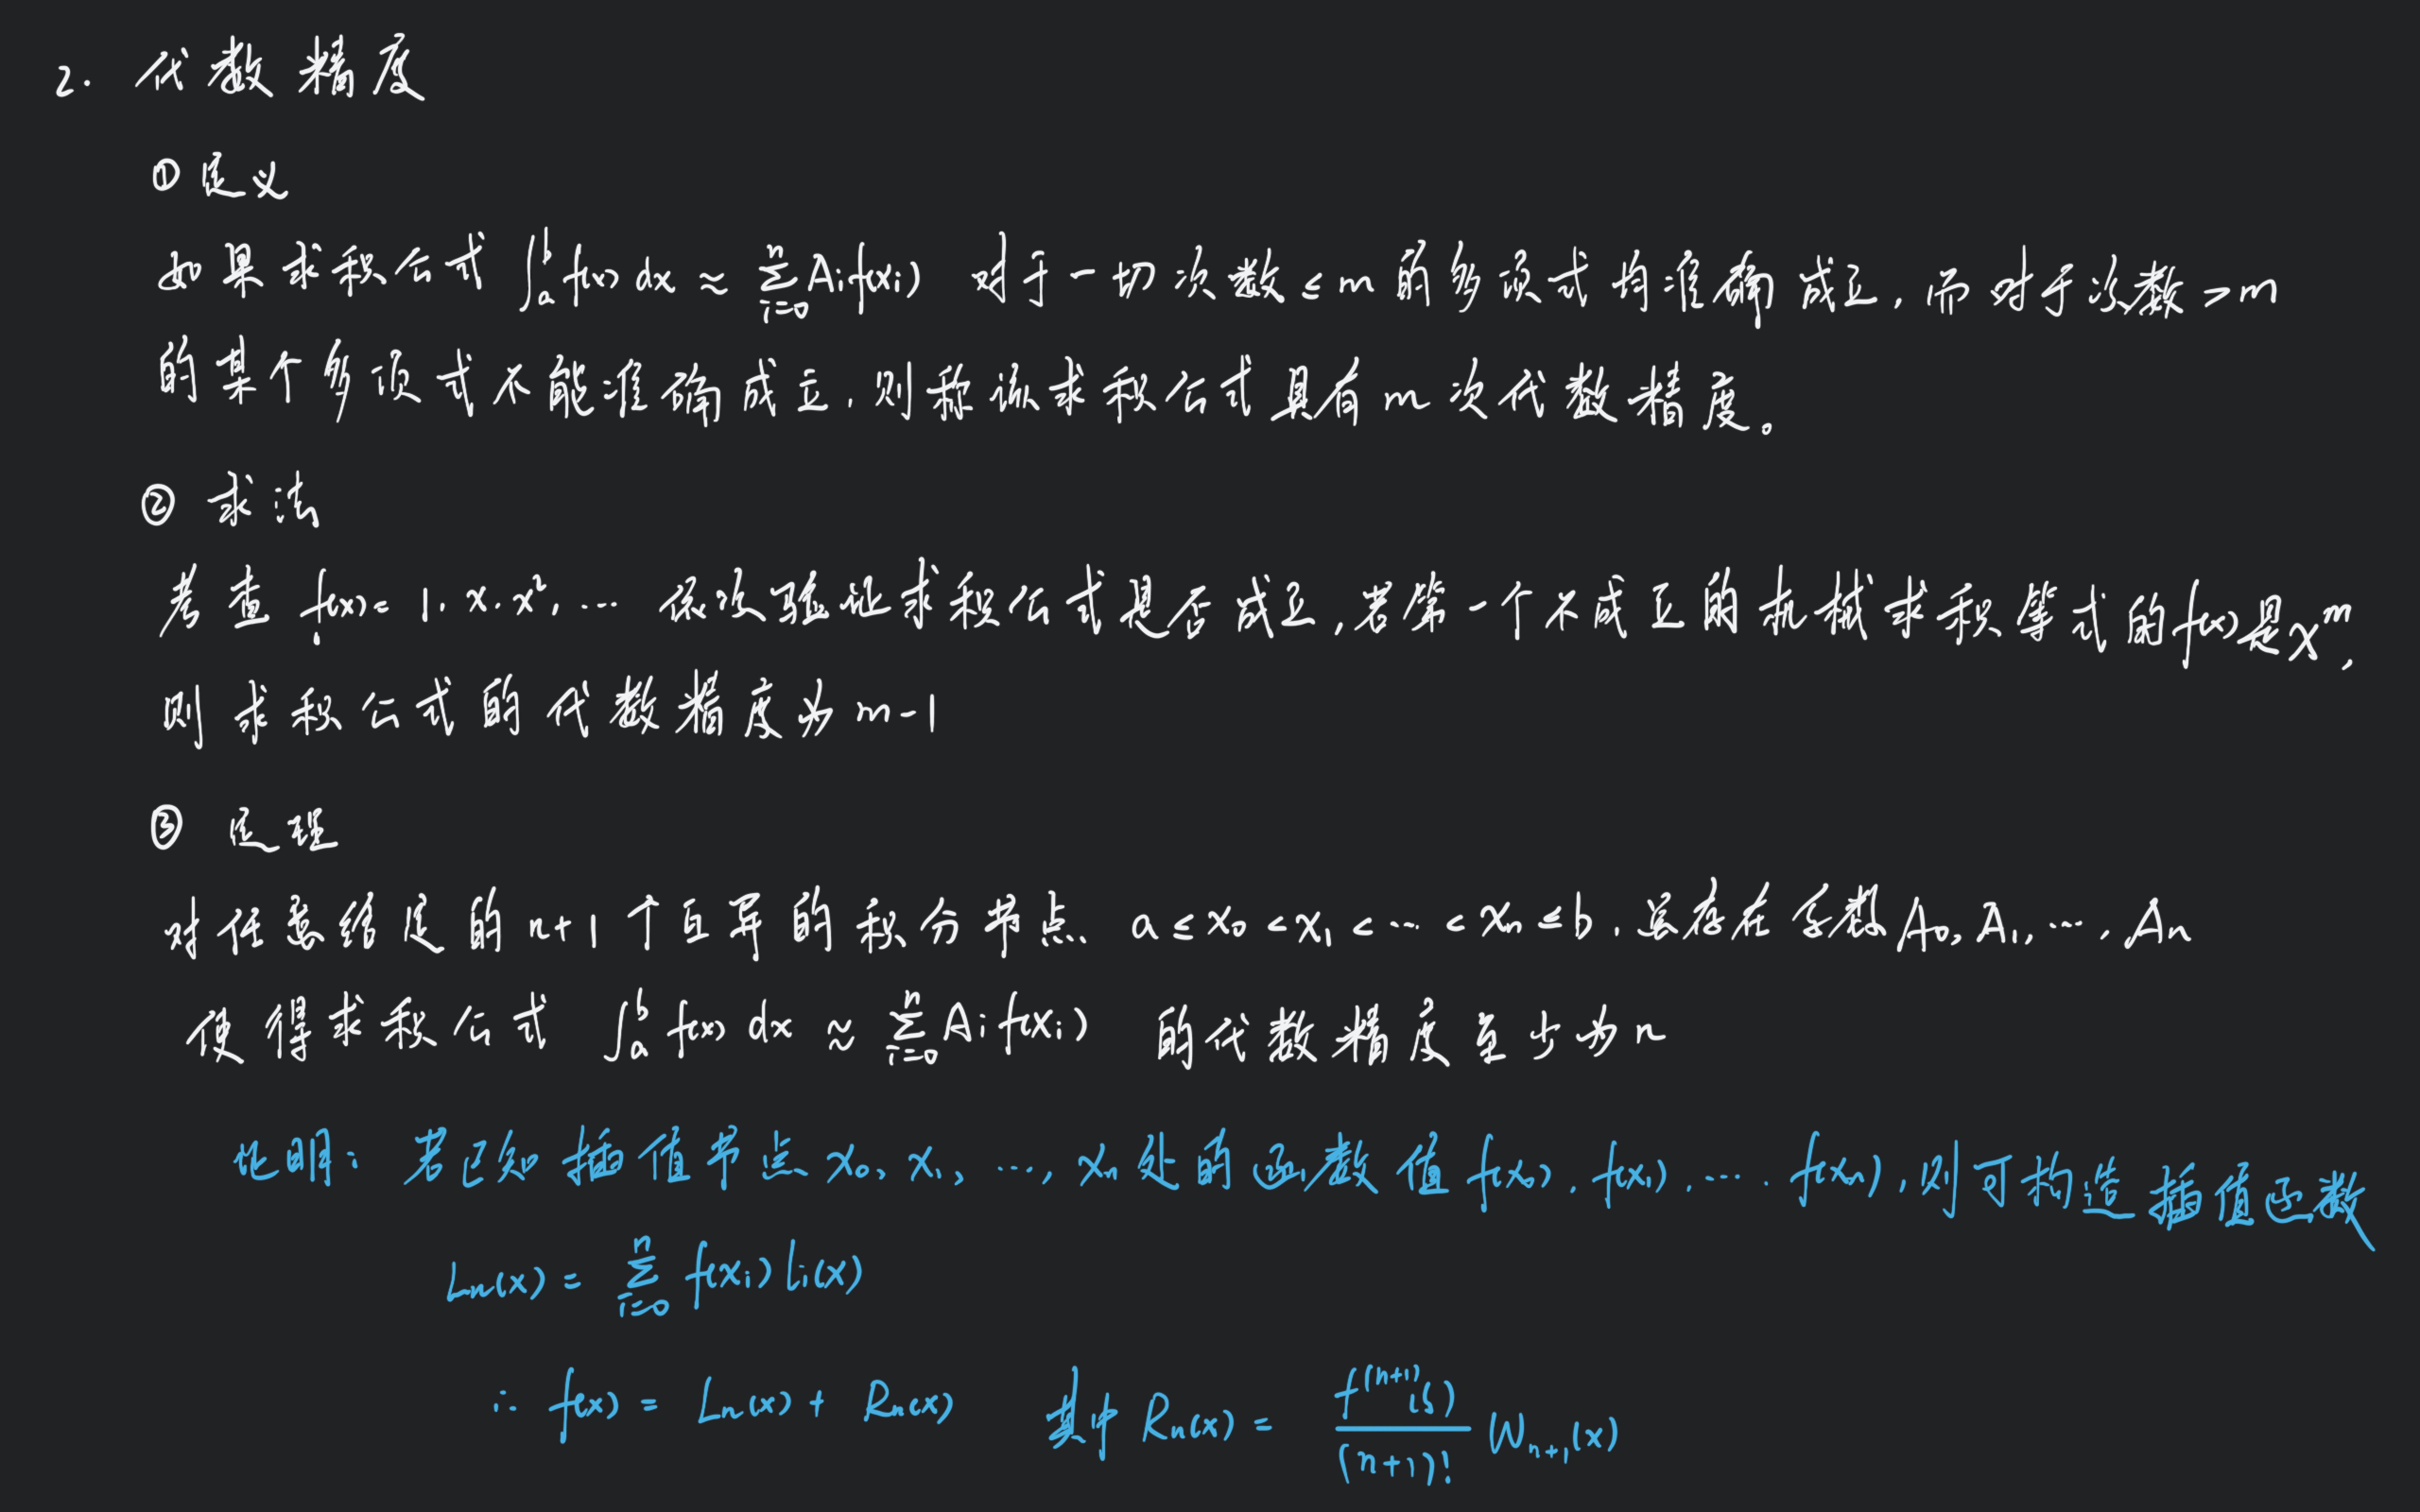 2. 代数精度
① 定义
如果求积公式 ∫_a^b f(x) dx ≈ Σ_{i=0}^n A_i f(x_i) 对于一切次数≤m的多项式均准确成立,而对于次数>m
的某个多项式不能准确成立,则称该求积公式具有m次代数精度。
② 求法
考查 f(x)= 1, x, x², … 依次验证求积公式是否成立,若第一个不成立的机械求积等式的f(x)是x^m,
则求积公式的代数精度为m-1
③ 定理
对任意给定的n+1个互异的积分节点 a≤x_0<x_1<…<x_n≤b,总存在系数A_0, A_1, …, A_n
使得求积公式 ∫_a^b f(x) dx ≈ Σ_{i=0}^n A_i f(x_i) 的代数精度至少为n
证明:若已知插值节点x_0, x_1, …, x_n处的函数值f(x_0), f(x_1), …, f(x_n),则可构造插值函数
L_n(x) = Σ_{i=0}^n f(x_i) l_i(x)
∴ f(x) = L_n(x) + R_n(x) 其中 R_n(x) = f^{(n+1)}(ξ)/(n+1)! W_{n+1}(x)